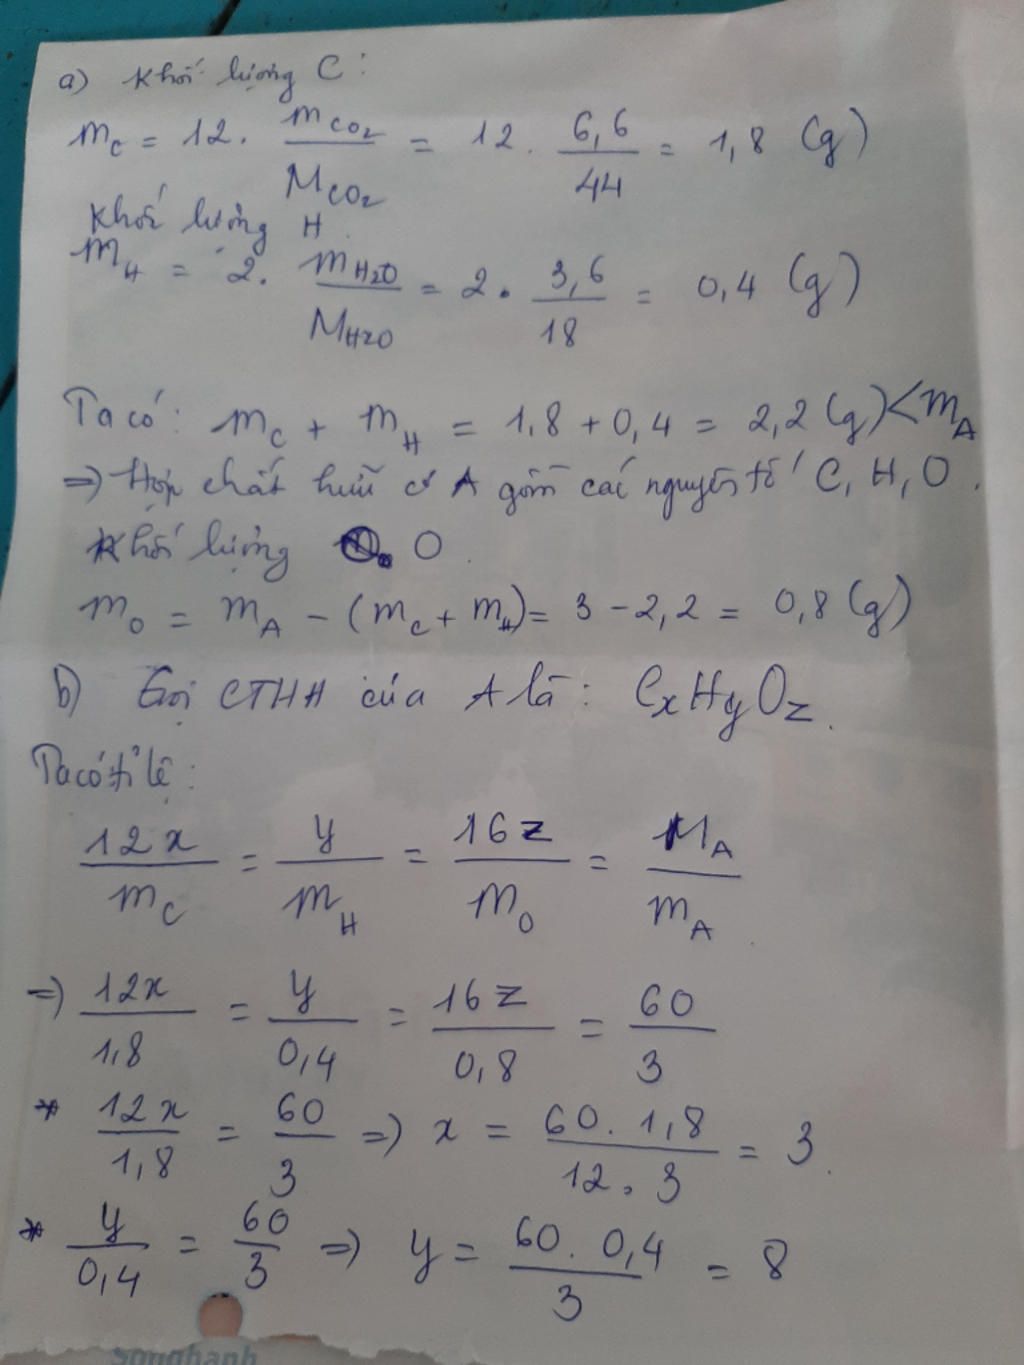 a) Khối lượng C :
m_C = 12 . m_CO₂ / M_CO₂ = 12 . 6,6 / 44 = 1,8 (g)
Khối lượng H
m_H = 2 . m_H2O / M_H2O = 2 . 3,6 / 18 = 0,4 (g)
Ta có : m_C + m_H = 1,8 + 0,4 = 2,2 (g) < m_A
=> Hợp chất hữu cơ A gồm các nguyên tố C, H, O .
Khối lượng O .
m_O = m_A - (m_C + m_H) = 3 - 2,2 = 0,8 (g)
b) Gọi CTHH của A là : CxHyOz .
Ta có tỉ lệ :
12x / m_C = y / m_H = 16z / m_O = M_A / m_A .
=> 12x / 1,8 = y / 0,4 = 16z / 0,8 = 60 / 3
* 12x / 1,8 = 60 / 3 => x = 60 . 1,8 / 12 . 3 = 3 .
* y / 0,4 = 60 / 3 => y = 60 . 0,4 / 3 = 8
Songhanh